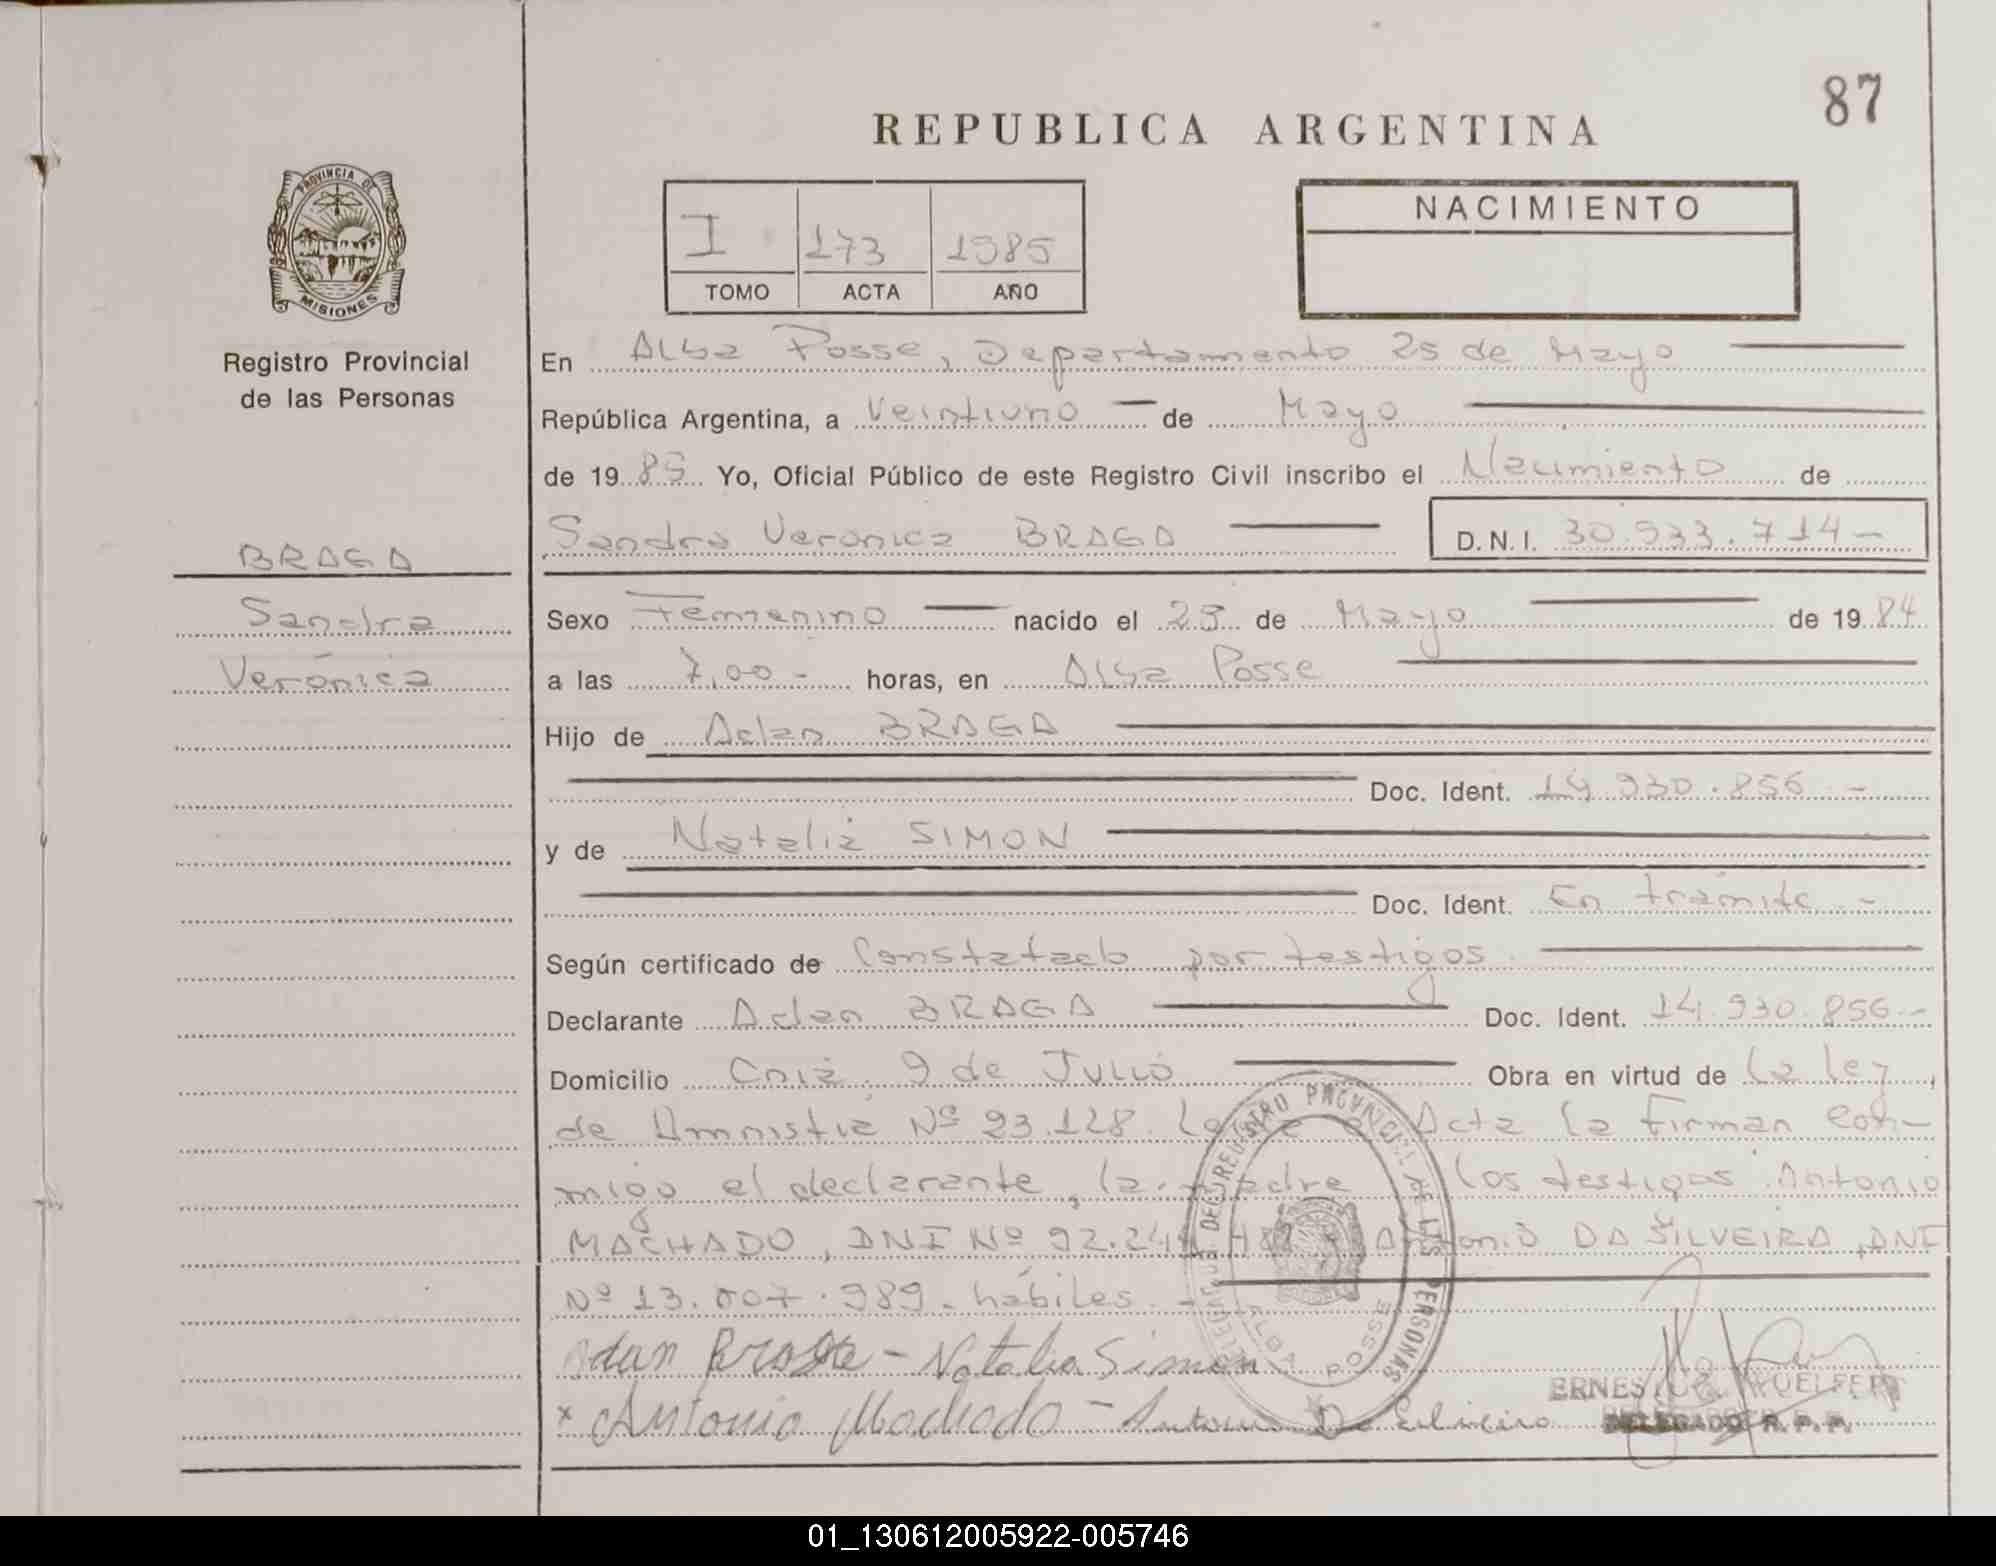 87
REPUBLICA ARGENTINA
PROVINCIA DE
MISIONES
Registro Provincial
de las Personas
I 173 1985
TOMO ACTA AÑO
NACIMIENTO
En Alba Posse, Departamento 25 de Mayo
República Argentina, a Veintiuno de Mayo
de 1985 Yo, Oficial Público de este Registro Civil inscribo el Nacimiento de
Sandra Verónica BRAGA D.N.I. 30.933.714-
BRAGA
Sandra
Verónica
Sexo Femenino nacido el 23 de Mayo de 1984
a las 7,00- horas, en Alba Posse
Hijo de Adan BRAGA
Doc. Ident. 14.930.856-
y de Natalia SIMON
Doc. Ident. En trámite-
Según certificado de Constatado por testigos
Declarante Adan BRAGA Doc. Ident. 14.930.856-
Domicilio Cnia. 9 de Julio Obra en virtud de la ley
de Amnistia Nº 23.128. Acta la Firman con-
migo el declarante, la madre los testigos Antonio
MACHADO, DNI Nº 92.24 Antonio DA SILVEIRA, DNI
Nº 13.007.989. hábiles.-
Adan Braga - Natalia Simon
x Antonio Machado - Antonio Da Silveira
DELEGADO R.P.P.
REGISTRO PROVINCIAL DE LAS PERSONAS
ALBA POSSE
01_130612005922-005746